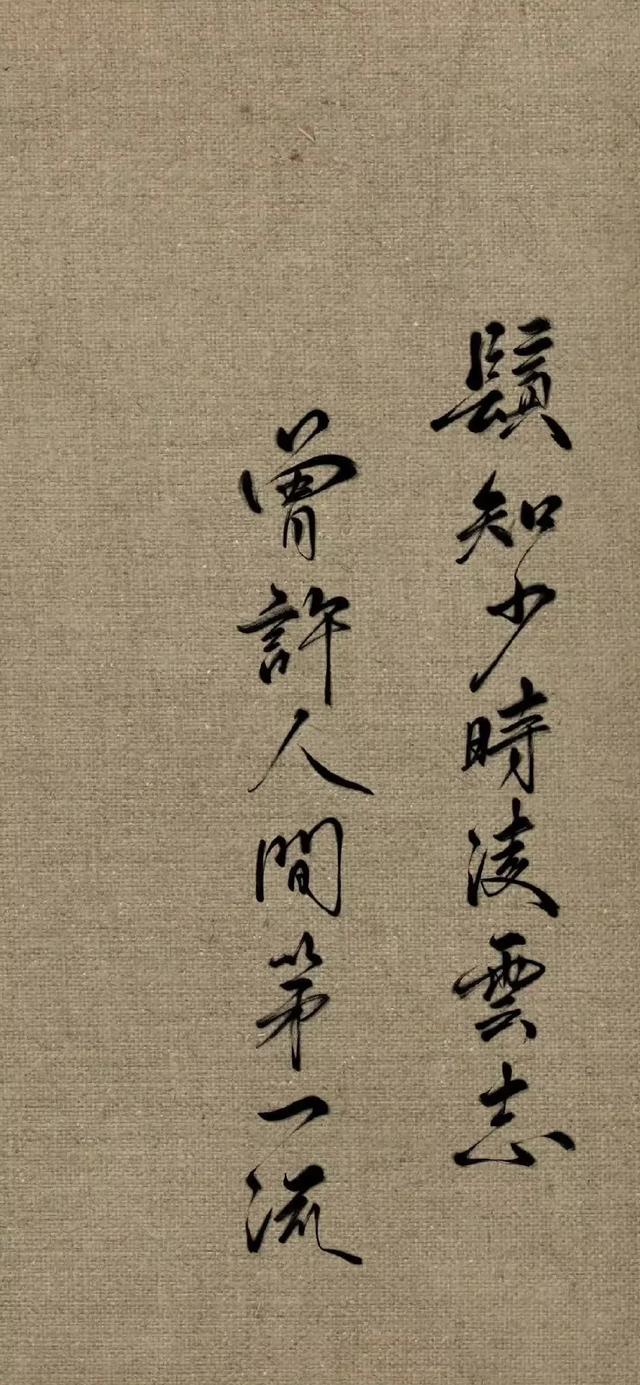 鬚知少時淩雲志
曾許人間第一流